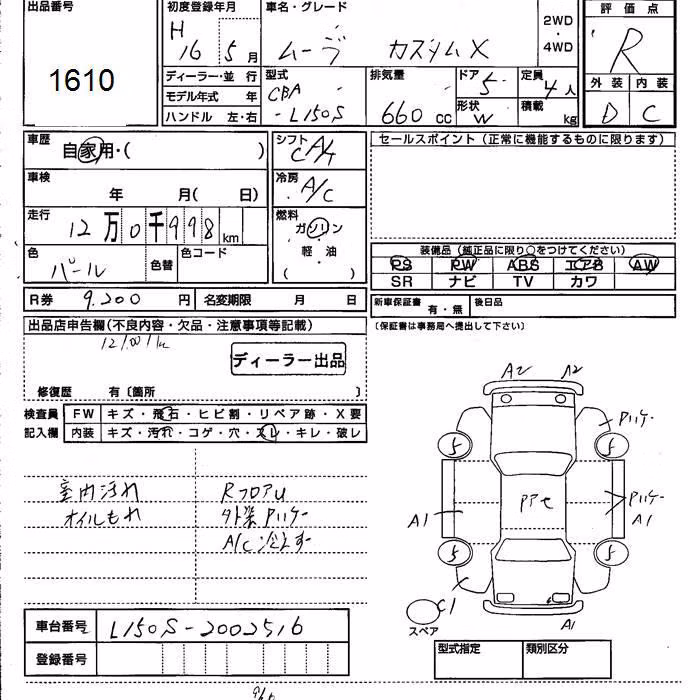 出品番号
1610
初度登録年月
H
16 5 月
車名・グレード
ムーヴ カスタムX
2WD
・
4WD
評価点
R
外装 内装
D C
ディーラー・並 行
モデル年式 年
ハンドル 左・右
型式
CBA
-L150S
排気量
660 cc
ドア 5
形状 W
定員
4 人
積載
kg
車歴
自家用・( )
車検
年 月( 日)
走行
12 万 0 千 998 km
色
パール
色替
色コード
シフト
CA/4
冷房
A/C
燃料
ガソリン
軽・油
( )
セールスポイント(正常に機能するものに限ります)
装備品(純正品に限り○をつけてください)
PS PW ABS エアB AW
SR ナビ TV カワ
R券 9.200 円 名変期限 月 日
新車保証書
有・無
後日品
(保証書は事務局へ提出して下さい)
出品店申告欄(不良内容・欠品・注意事項等記載)
ディーラー出品
修復歴 有〔箇所 〕
検査員
記入欄
FW キズ・飛石・ヒビ割・リペア跡・X要
内装 キズ・汚れ・コゲ・穴・スレ・キレ・破レ
室内汚れ
オイルもれ
RフロアU
外装Pハゲ
A/C冷えず
A2 A2
Pハゲ
5 5
A1
Pハゲ
A1
5 5
C1
A1
スペア
車台番号 L150S-2002516
登録番号
型式指定 類別区分